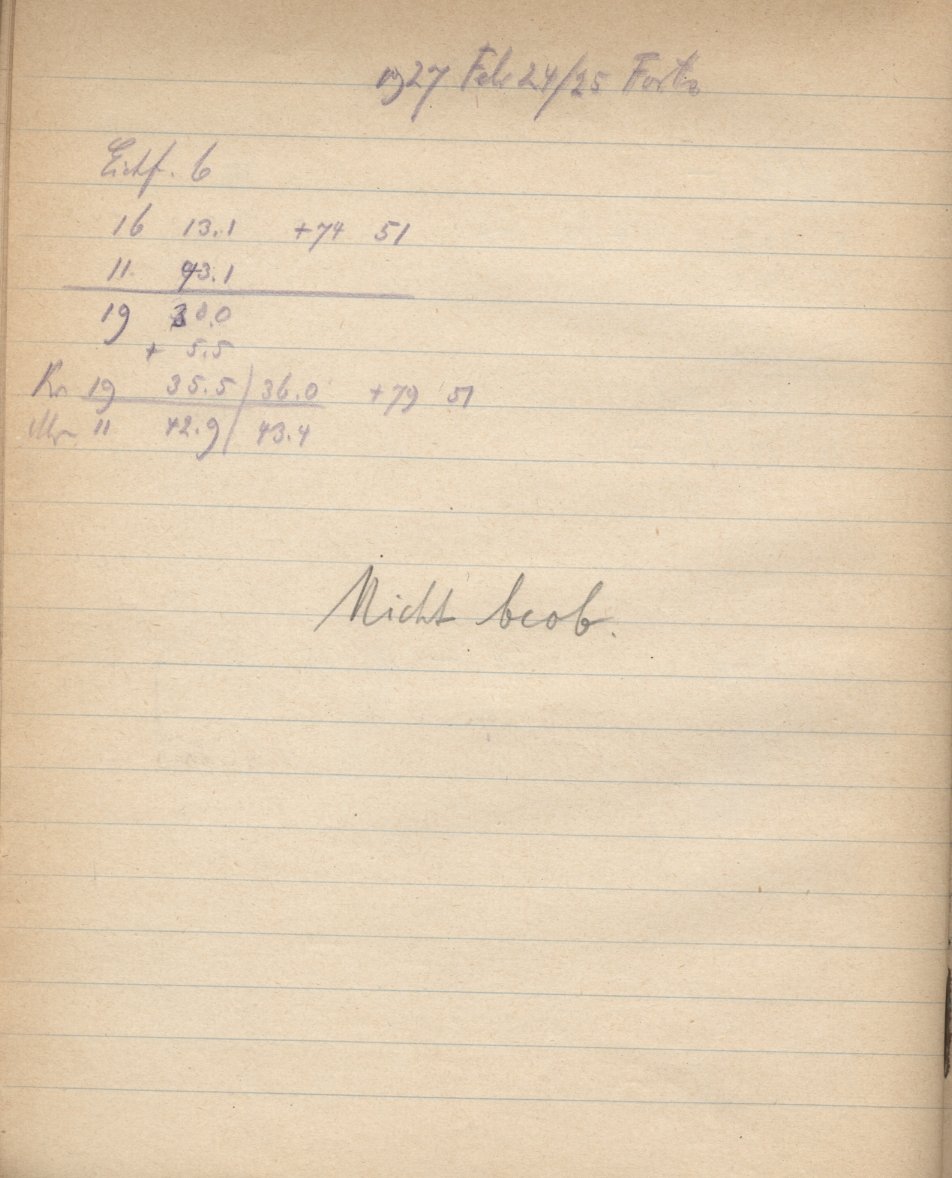 1927 Feb 24/25 Forts.
Eichf. 6
16 13.1 +74 51
11 43.1
19 30.0
+ 5.5
Kr 19 35.5 | 36.0 +79 51
11 42.9 | 43.4
Nicht beob.